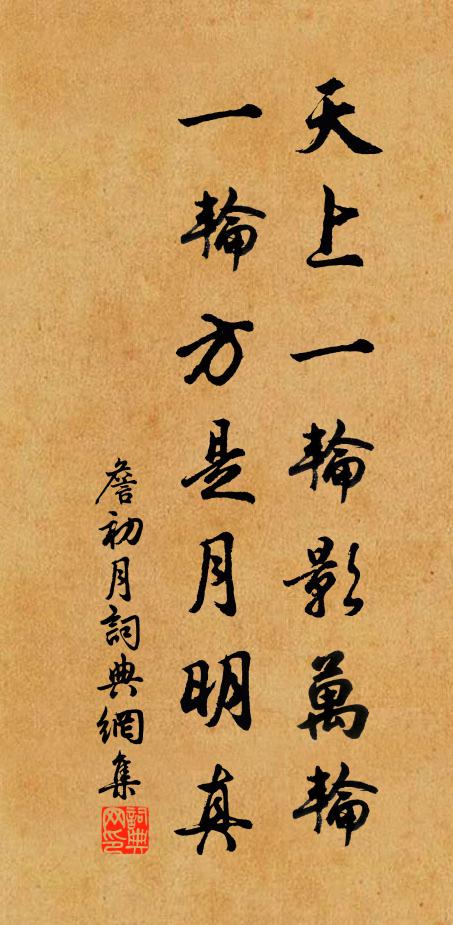 天上一輪影萬輪
一輪方是月明真
詹初月詞典網集
詞典网印